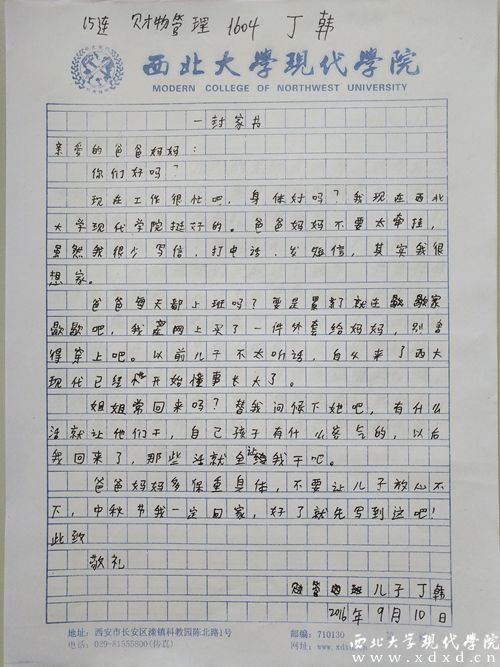 15连 财物管理 1604 丁韩
西北大學現代學院
MODERN COLLEGE OF NORTHWEST UNIVERSITY
一封家书
亲爱的爸爸妈妈:
你们好吗?
现在工作很忙吧,身体好吗?我现在西北
大学现代学院挺好的。爸爸妈妈不要太牵挂,
虽然我很少写信,打电话,发短信,其实我很
想家。
爸爸每天都上班吗?要是累了就在家
歇歇吧,我在网上买了一件外套给妈妈,别舍不
得穿上吧。以前儿子不太听话,自从来了西大
现代已经开始懂事长大了。
姐姐常回来吗?替我问候下她吧,有什么
活就让他们干,自己孩子有什么客气的,以后
我回来了,那些活就全让我干吧。
爸爸妈妈多保重身体,不要让儿子放心不
下,中秋节我一定回家,好了就先写到这吧!
此致
敬礼
财管四班 儿子 丁韩
2016年9月10日
地址:西安市长安区滦镇科教园陈北路1号
电话:029-81555800(传真)
邮编:710130
网址:www.xdxd
西北大学现代学院
www.xdxd.cn